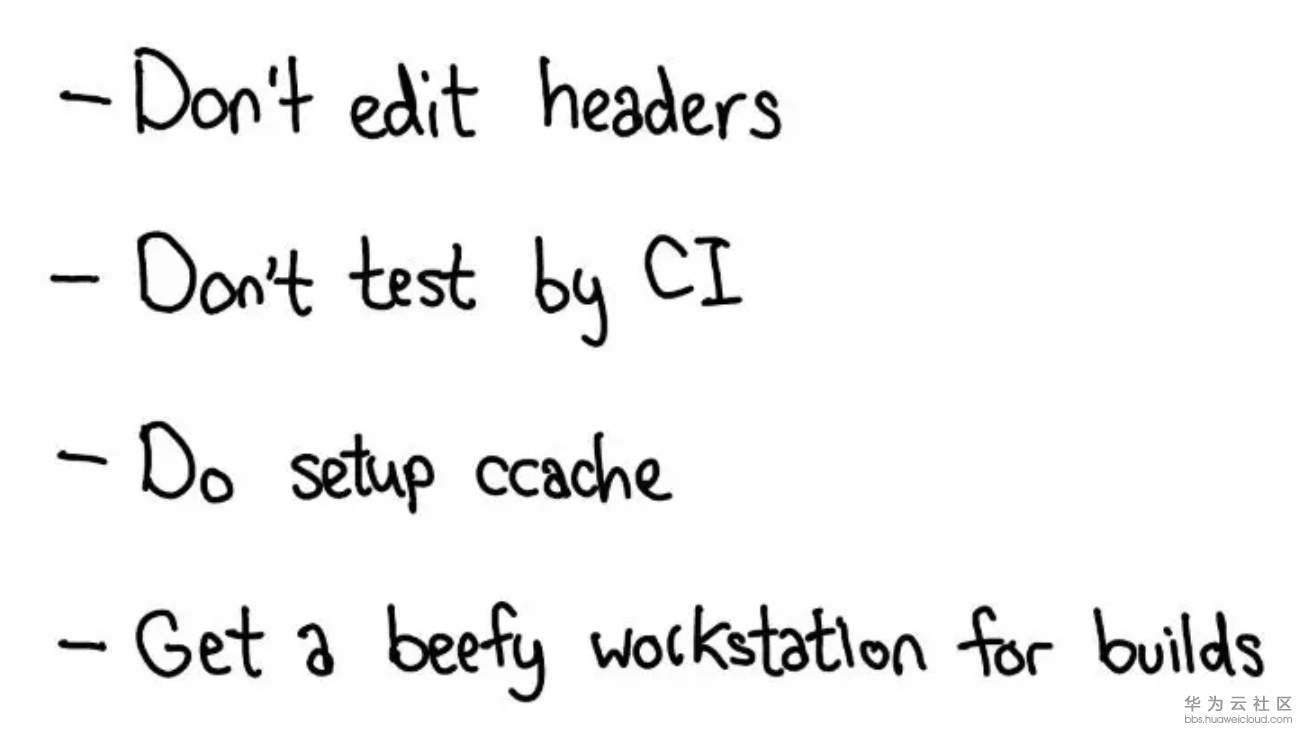 - Don't edit headers
- Don't test by CI
- Do setup ccache
- Get a beefy workstation for builds
华为云社区
bbs.huaweicloud.com